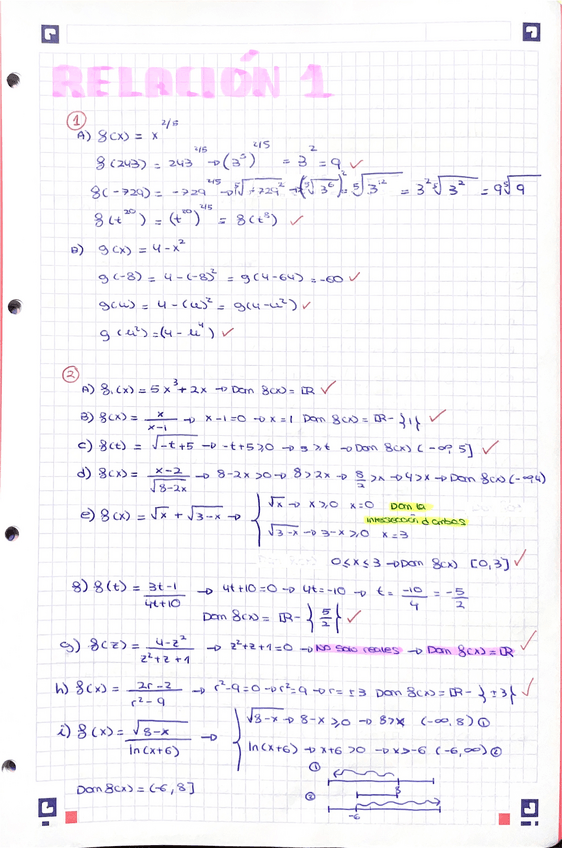 RELACIÓN 1
①
A) f(x) = x^2/5
f(243) = 243^2/5 → (3^5)^2/5 = 3^2 = 9 ✓
f(-729) = -729^2/5 → ⁵√-729^2 → (⁵√3^6)^2 = ⁵√3^12 = 3^2 ⁵√3^2 = 9 ⁵√9
f(t^20) = (t^20)^2/5 = f(t^8) ✓
B) g(x) = 4-x^2
g(-8) = 4-(-8)^2 = g(4-64) = -60 ✓
g(u) = 4-(u)^2 = g(4-u^2) ✓
g(u^2) = (4-u^4) ✓
②
A) f(x) = 5x^3 + 2x → Dom f(x) = ℝ ✓
B) f(x) = x/x-1 → x-1=0 → x=1 Dom f(x) = ℝ - {1} ✓
c) f(t) = √-t+5 → -t+5≥0 → 5≥t → Dom f(x) (-∞, 5] ✓
d) f(x) = x-2/√8-2x → 8-2x>0 → 8>2x → 8/2>x → 4>x → Dom f(x) (-∞4)
e) f(x) = √x + √3-x → { √x → x≥0 x=0 Dom la
intersección d ambas
√3-x → 3-x≥0 x=3
0≤x≤3 → Dom f(x) [0,3] ✓
f) f(t) = 3t-1/4t+10 → 4t+10=0 → 4t=-10 → t = -10/4 = -5/2
Dom f(x) = ℝ - {5/2} ✓
g) f(z) = 4-z^2/z^2+z+1 → z^2+z+1=0 → No solo reales → Dom f(x) = ℝ ✓
h) f(x) = 2r-2/r^2-9 → r^2-9=0 → r^2=9 → r=±3 Dom f(x) = ℝ - {±3} ✓
i) f(x) = √8-x/ln(x+6) → { √8-x → 8-x≥0 → 8>x (-∞, 8) ①
ln(x+6) → x+6>0 → x>-6 (-6,∞) ②
①
8
②
-6
Dom f(x) = (-6, 8]